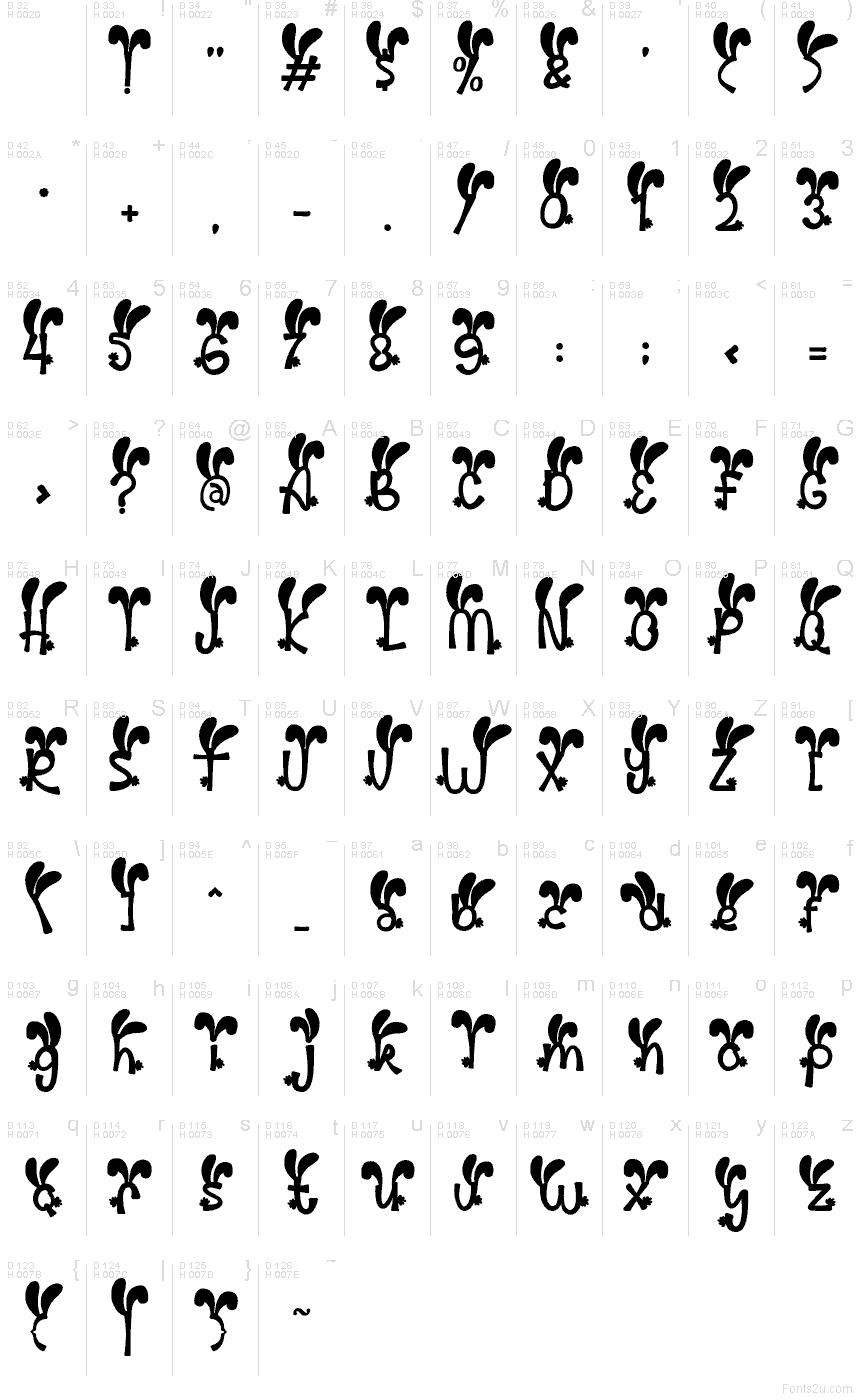 D 32 H 0020 D 33 H 0021 ! D 34 H 0022 " D 35 H 0023 # D 36 H 0024 $ D 37 H 0025 % D 38 H 0026 & D 39 H 0027 ' D 40 H 0028 ( D 41 H 0029 )
! " # $ % & ' ( )
D 42 H 002A * D 43 H 002B + D 44 H 002C , D 45 H 002D - D 46 H 002E . D 47 H 002F / D 48 H 0030 0 D 49 H 0031 1 D 50 H 0032 2 D 51 H 0033 3
* + , - . / 0 1 2 3
D 52 H 0034 4 D 53 H 0035 5 D 54 H 0036 6 D 55 H 0037 7 D 56 H 0038 8 D 57 H 0039 9 D 58 H 003A : D 59 H 003B ; D 60 H 003C < D 61 H 003D =
4 5 6 7 8 9 : ; < =
D 62 H 003E > D 63 H 003F ? D 64 H 0040 @ D 65 H 0041 A D 66 H 0042 B D 67 H 0043 C D 68 H 0044 D D 69 H 0045 E D 70 H 0046 F D 71 H 0047 G
> ? @ A B C D E F G
D 72 H 0048 H D 73 H 0049 I D 74 H 004A J D 75 H 004B K D 76 H 004C L D 77 H 004D M D 78 H 004E N D 79 H 004F O D 80 H 0050 P D 81 H 0051 Q
H I J K L M N O P Q
D 82 H 0052 R D 83 H 0053 S D 84 H 0054 T D 85 H 0055 U D 86 H 0056 V D 87 H 0057 W D 88 H 0058 X D 89 H 0059 Y D 90 H 005A Z D 91 H 005B [
R S T U V W X Y Z [
D 92 H 005C \ D 93 H 005D ] D 94 H 005E ^ D 95 H 005F _ D 97 H 0061 a D 98 H 0062 b D 99 H 0063 c D 100 H 0064 d D 101 H 0065 e D 102 H 0066 f
\ ] ^ _ a b c d e f
D 103 H 0067 g D 104 H 0068 h D 105 H 0069 i D 106 H 006A j D 107 H 006B k D 108 H 006C l D 109 H 006D m D 110 H 006E n D 111 H 006F o D 112 H 0070 p
g h i j k l m n o p
D 113 H 0071 q D 114 H 0072 r D 115 H 0073 s D 116 H 0074 t D 117 H 0075 u D 118 H 0076 v D 119 H 0077 w D 120 H 0078 x D 121 H 0079 y D 122 H 007A z
q r s t u v w x y z
D 123 H 007B { D 124 H 007C | D 125 H 007D } D 126 H 007E ~
{ | } ~
Fonts2u.com